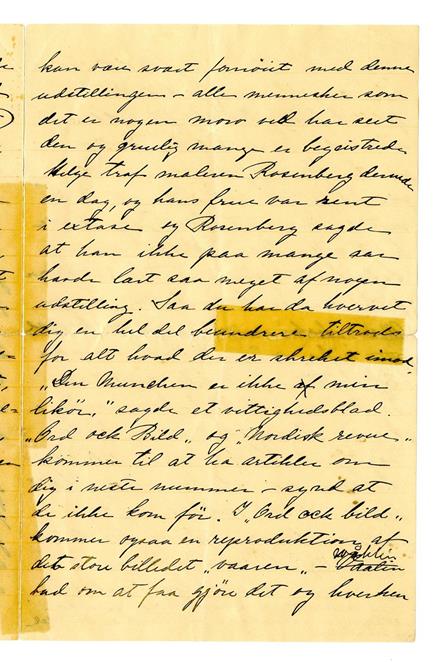 kan være svært fornøiet med denne
udstillingen – alle mennesker som
det er nogen moro ved har seet
den og gruelig mange er begeistrede
Helge traf maleren Rosenberg dernede
en dag, og hans frue var rent
i extase og Rosenberg sagde
at han ikke paa mange aar
havde lært saa meget af nogen
udstilling. Saa du har da hvervet
dig en hel del beundrere tiltrods
for alt hvad der er skreket imod
„Den Munchen er ikke af min
likör,” sagde et vittighedsblad.
„Ord och Bild” og „Nordisk revue”
kommer til at ha artikler om
dig i neste nummer – synd at
de ikke kom før. I „Ord och bild”
kommer ogsaa en reproduktion af
det store billedet „vaaren” – Wåhlin
bad om at faa gjøre det og hverken